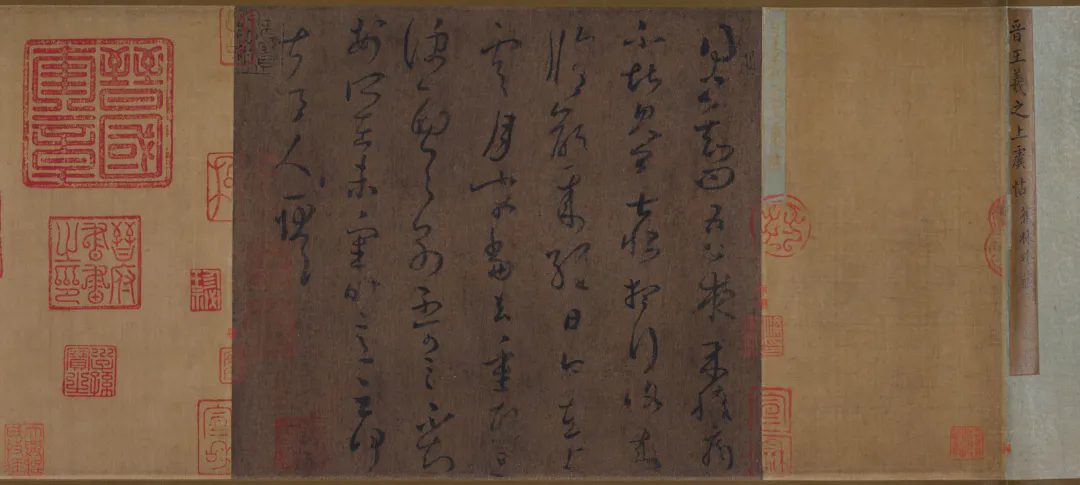 晋王羲之上虞帖
得書知問吾夜來腹痛
不堪見卿甚恨想行復來
脩齡來經日今在上
虞月末當去重熙旦
便西與別不可言不知
安所在未審時意云何
甚令人耿耿
晉國奎章
晉府書畫之印